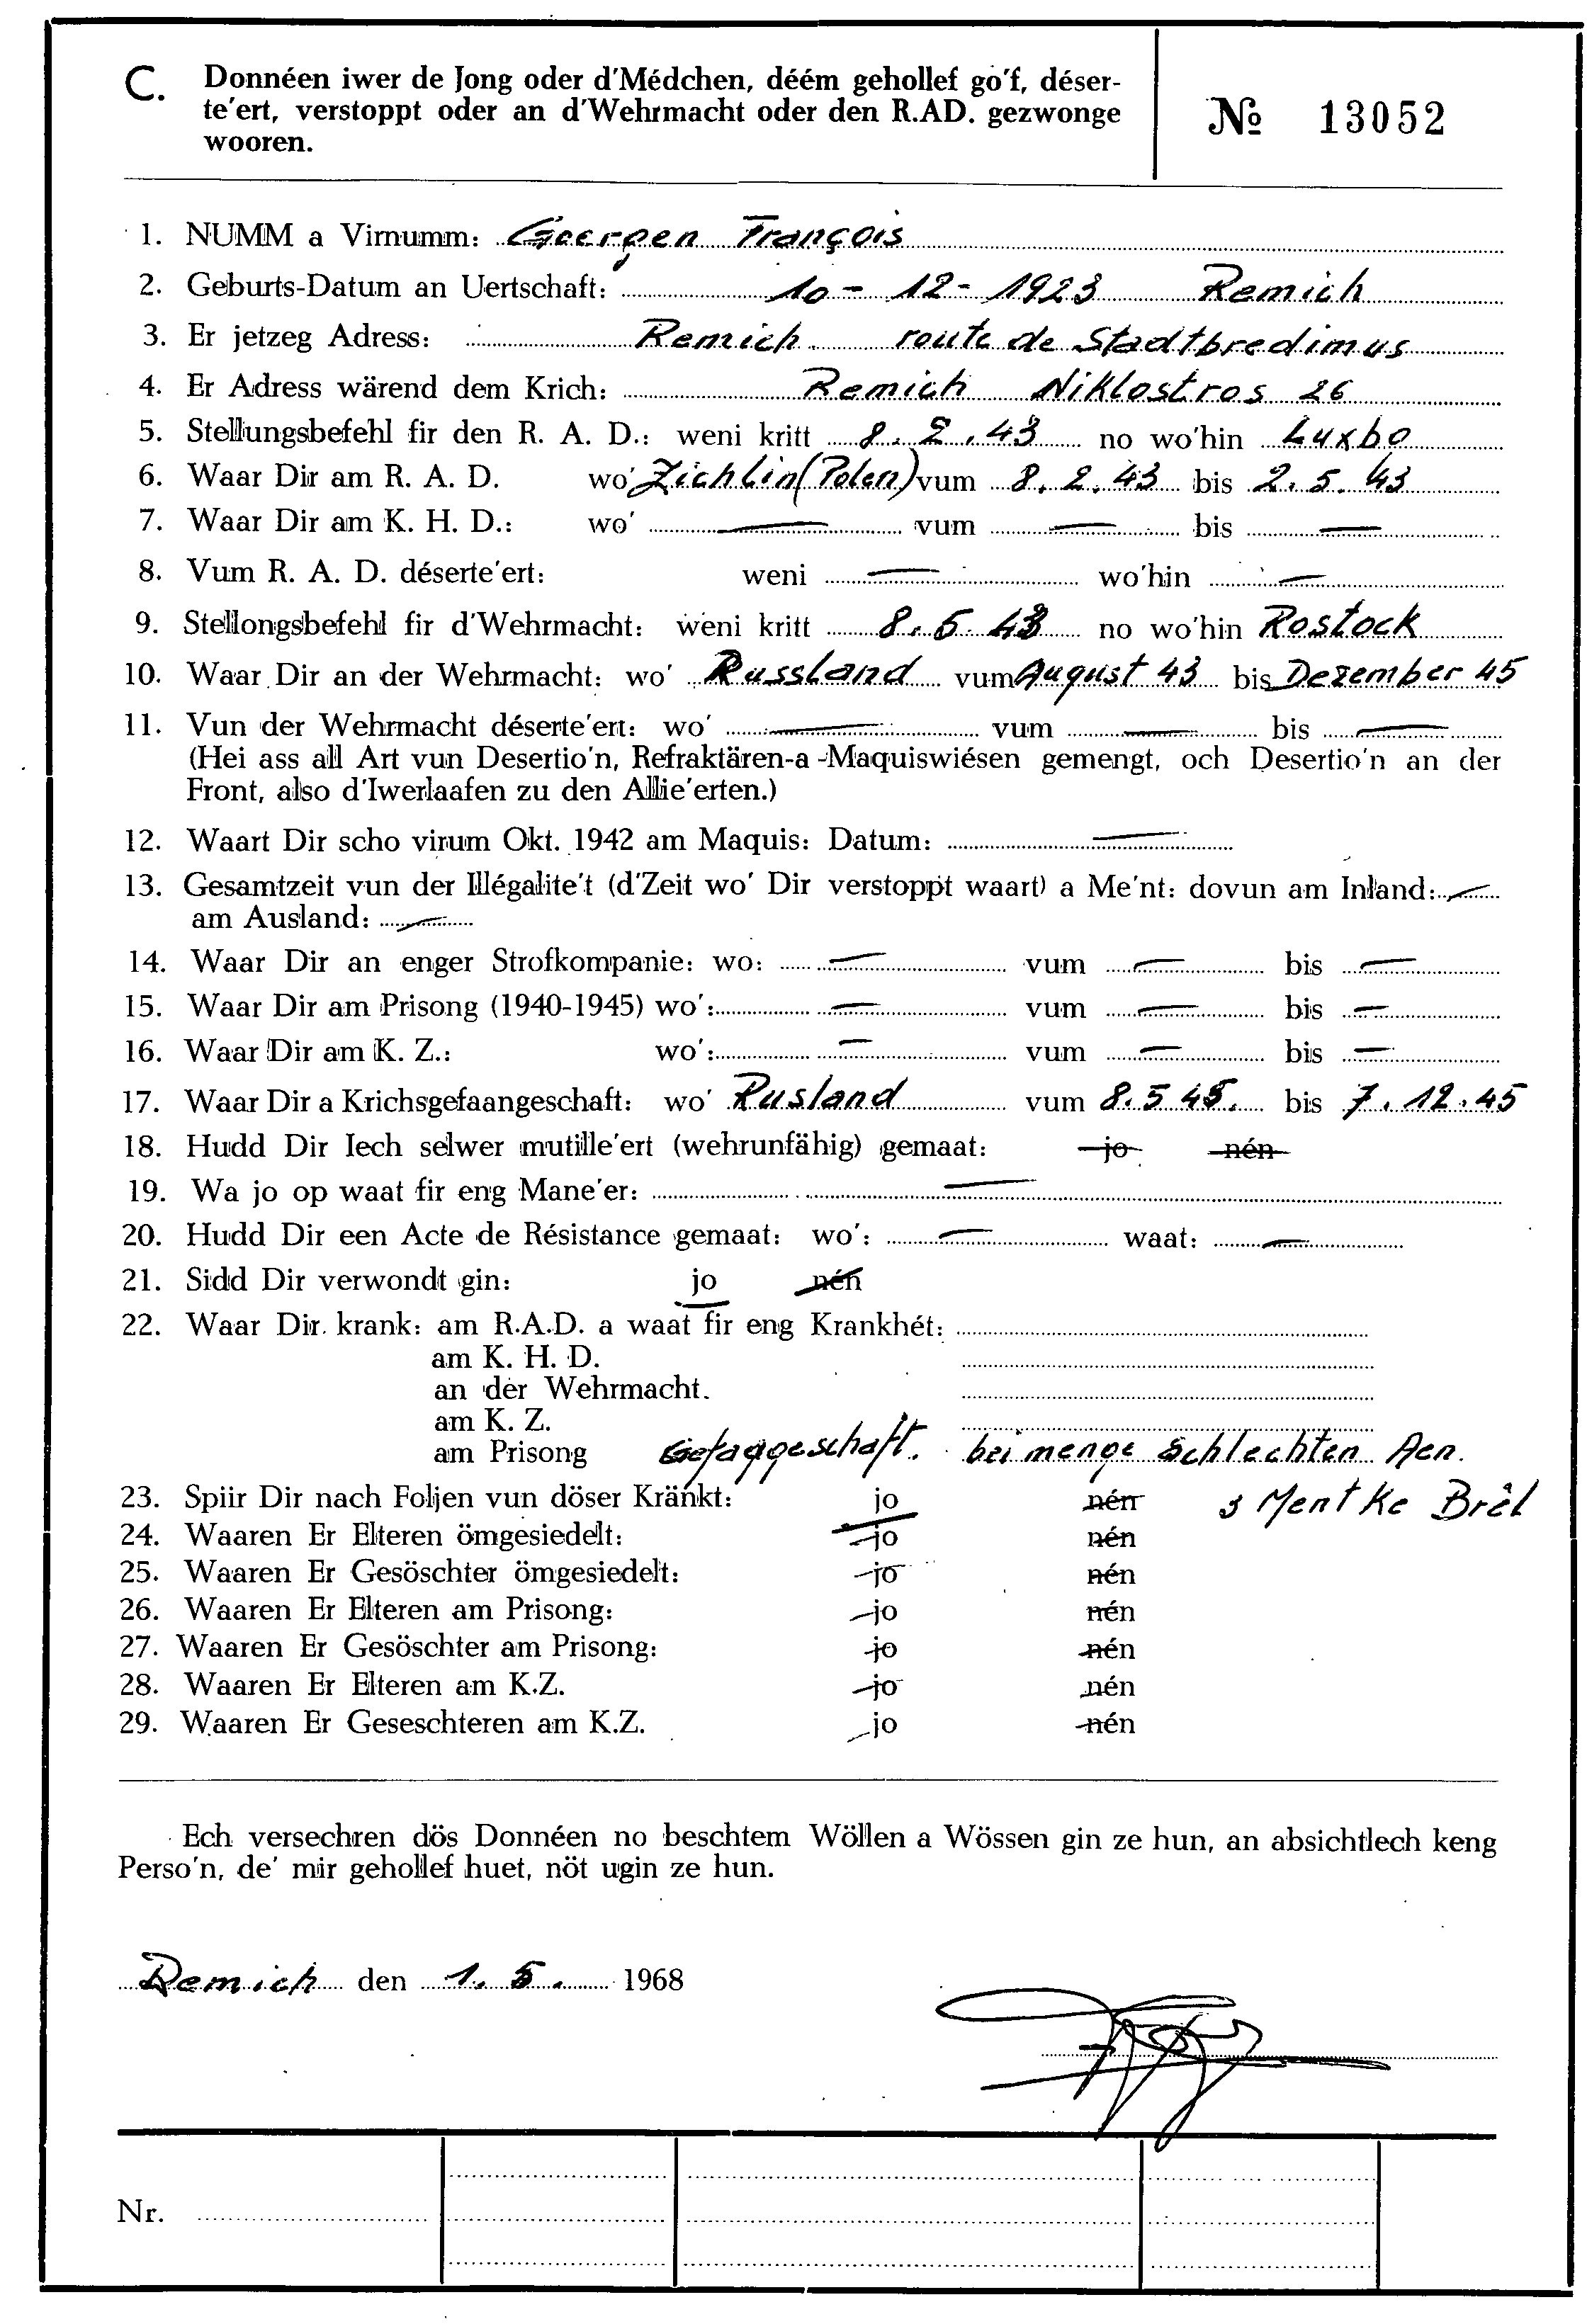 C. Donnéen iwer de Jong oder d'Médchen, déém gehollef go'f, déser-
te'ert, verstoppt oder an d'Wehrmacht oder den R.AD. gezwonge
wooren.
№ 13052
1. NUMM a Virnumm: Goergen François
2. Geburts-Datum an Uertschaft: 10 - 12 - 1923 Remich
3. Er jetzeg Adress: Remich. route de Stadtbredimus
4. Er Adress wärend dem Krich: Remich Niklostros 26
5. Stellungsbefehl fir den R. A. D.: weni kritt 8. 2. 43 no wo'hin Luxbo
6. Waar Dir am R. A. D. wo' Zichlin (Polen) vum 8. 2. 43 bis 2. 5. 43
7. Waar Dir am K. H. D.: wo' — vum — bis —
8. Vum R. A. D. déserte'ert: weni — wo'hin —
9. Stellongsbefehl fir d'Wehrmacht: weni kritt 8. 5. 43 no wo'hin Rostock
10. Waar Dir an der Wehrmacht: wo' Russland vum August 43 bis Dezember 45
11. Vun der Wehrmacht déserte'ert: wo' — vum — bis —
(Hei ass all Art vun Desertio'n, Refraktären-a-Maquiswiésen gemengt, och Desertio'n an der
Front, also d'Iwerlaafen zu den Allie'erten.)
12. Waart Dir scho virum Okt. 1942 am Maquis: Datum: —
13. Gesamtzeit vun der Illégalite't (d'Zeit wo' Dir verstoppt waart) a Me'nt: dovun am Inland: —
am Ausland: —
14. Waar Dir an enger Strofkompanie: wo: — vum — bis —
15. Waar Dir am Prisong (1940-1945) wo': — vum — bis —
16. Waar Dir am K. Z.: wo': — vum — bis —
17. Waar Dir a Krichsgefaangeschaft: wo' Rusland vum 8. 5 45. bis 7. 12. 45
18. Hudd Dir Iech selwer mutille'ert (wehrunfähig) gemaat: jo nén
19. Wa jo op waat fir eng Mane'er: —
20. Hudd Dir een Acte de Résistance gemaat: wo': — waat: —
21. Sidd Dir verwondt gin: jo nén
22. Waar Dir krank: am R.A.D. a waat fir eng Krankhét:
am K. H. D.
an der Wehrmacht.
am K. Z.
am Prisong bei menge schlechten Aen.
23. Spiir Dir nach Foljen vun döser Kränkt: jo nén
24. Waaren Er Elteren ömgesiedelt: jo nén
25. Waaren Er Gesöschter ömgesiedelt: jo nén
26. Waaren Er Elteren am Prisong: jo nén
27. Waaren Er Gesöschter am Prisong: jo nén
28. Waaren Er Elteren am K.Z. jo nén
29. Waaren Er Geseschteren am K.Z. jo nén
Ech versechren dös Donnéen no beschtem Wöllen a Wössen gin ze hun, an absichtlech keng
Perso'n, de' mir gehollef huet, nöt ugin ze hun.
Remich den 1. 5. 1968
Nr.